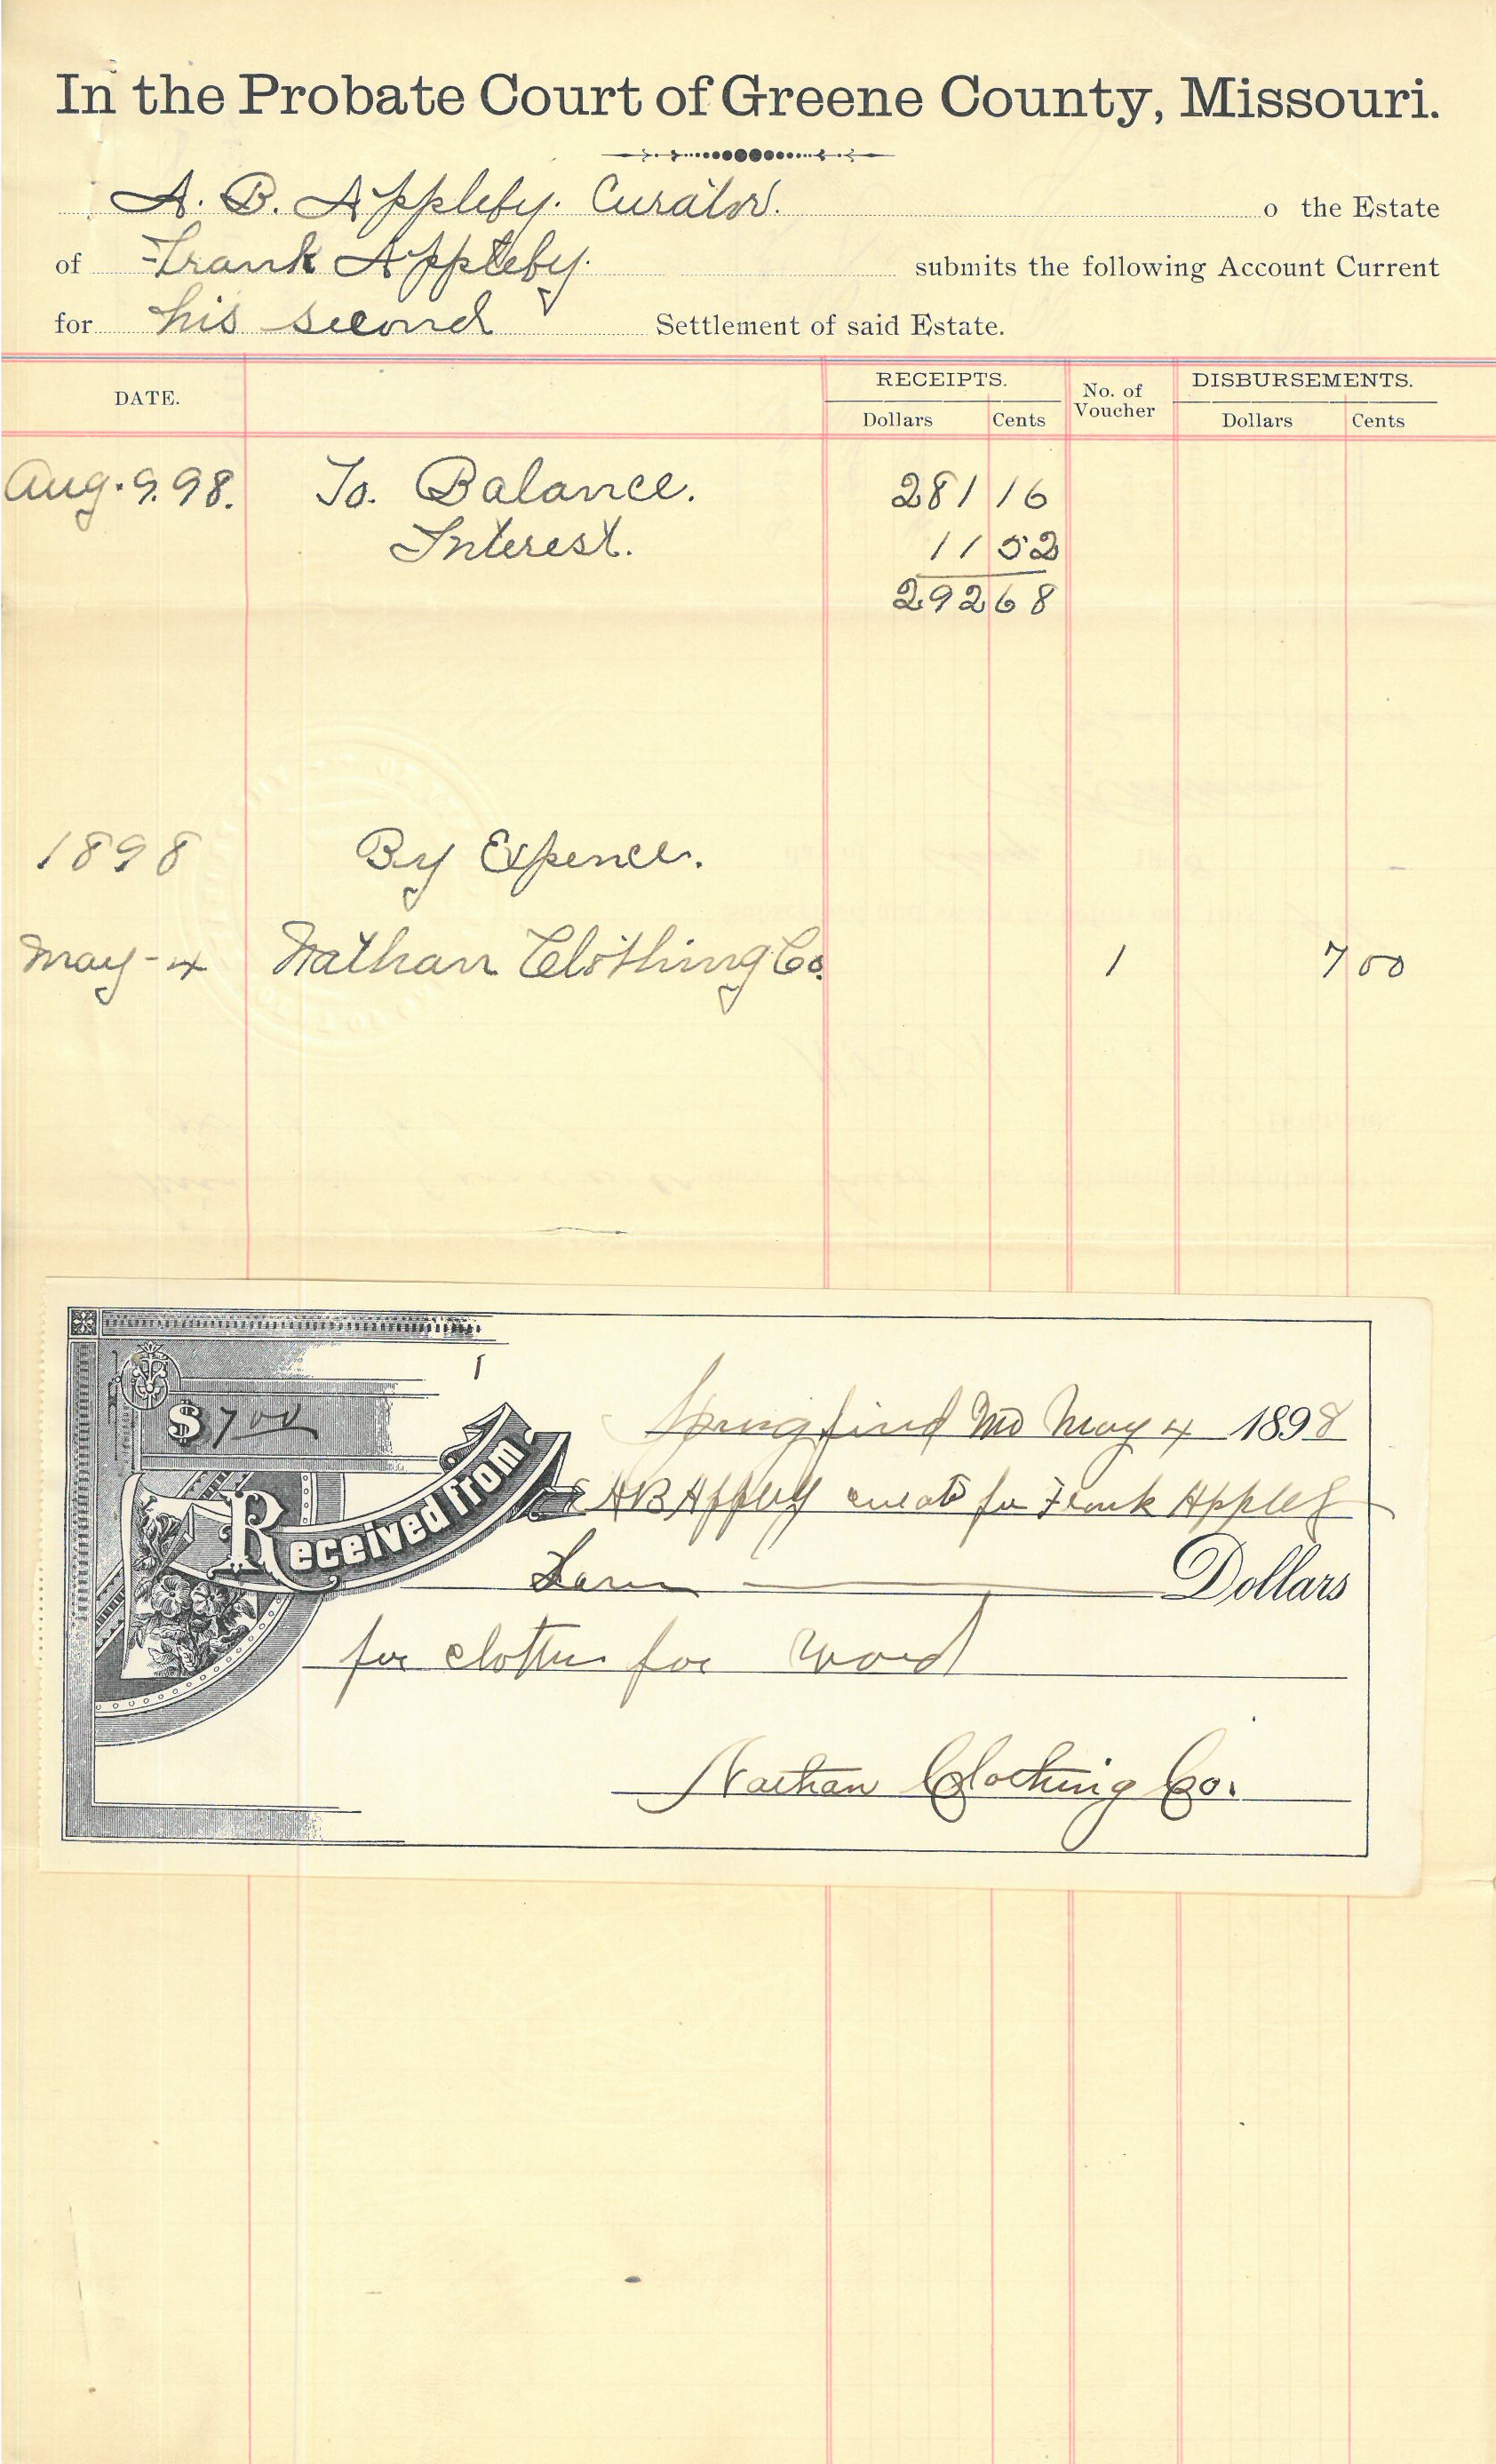 In the Probate Court of Greene County, Missouri.
A. B. Appleby. Curator. o the Estate
of Frank Appleby. submits the following Account Current
for his second Settlement of said Estate.
DATE. RECEIPTS. No. of Voucher DISBURSEMENTS.
Dollars Cents Dollars Cents
Aug. 9. 98. To. Balance. 281 16
Interest. 11 52
292 68
1898 By Expence.
May - 4 Nathan Clothing Co. 1 7 00
1
$ 7 00 Springfield Mo May 4 1898
Received from AB Appleby curator for Frank Appleby
Dollars
for clothes for ward
Nathan Clothing Co.